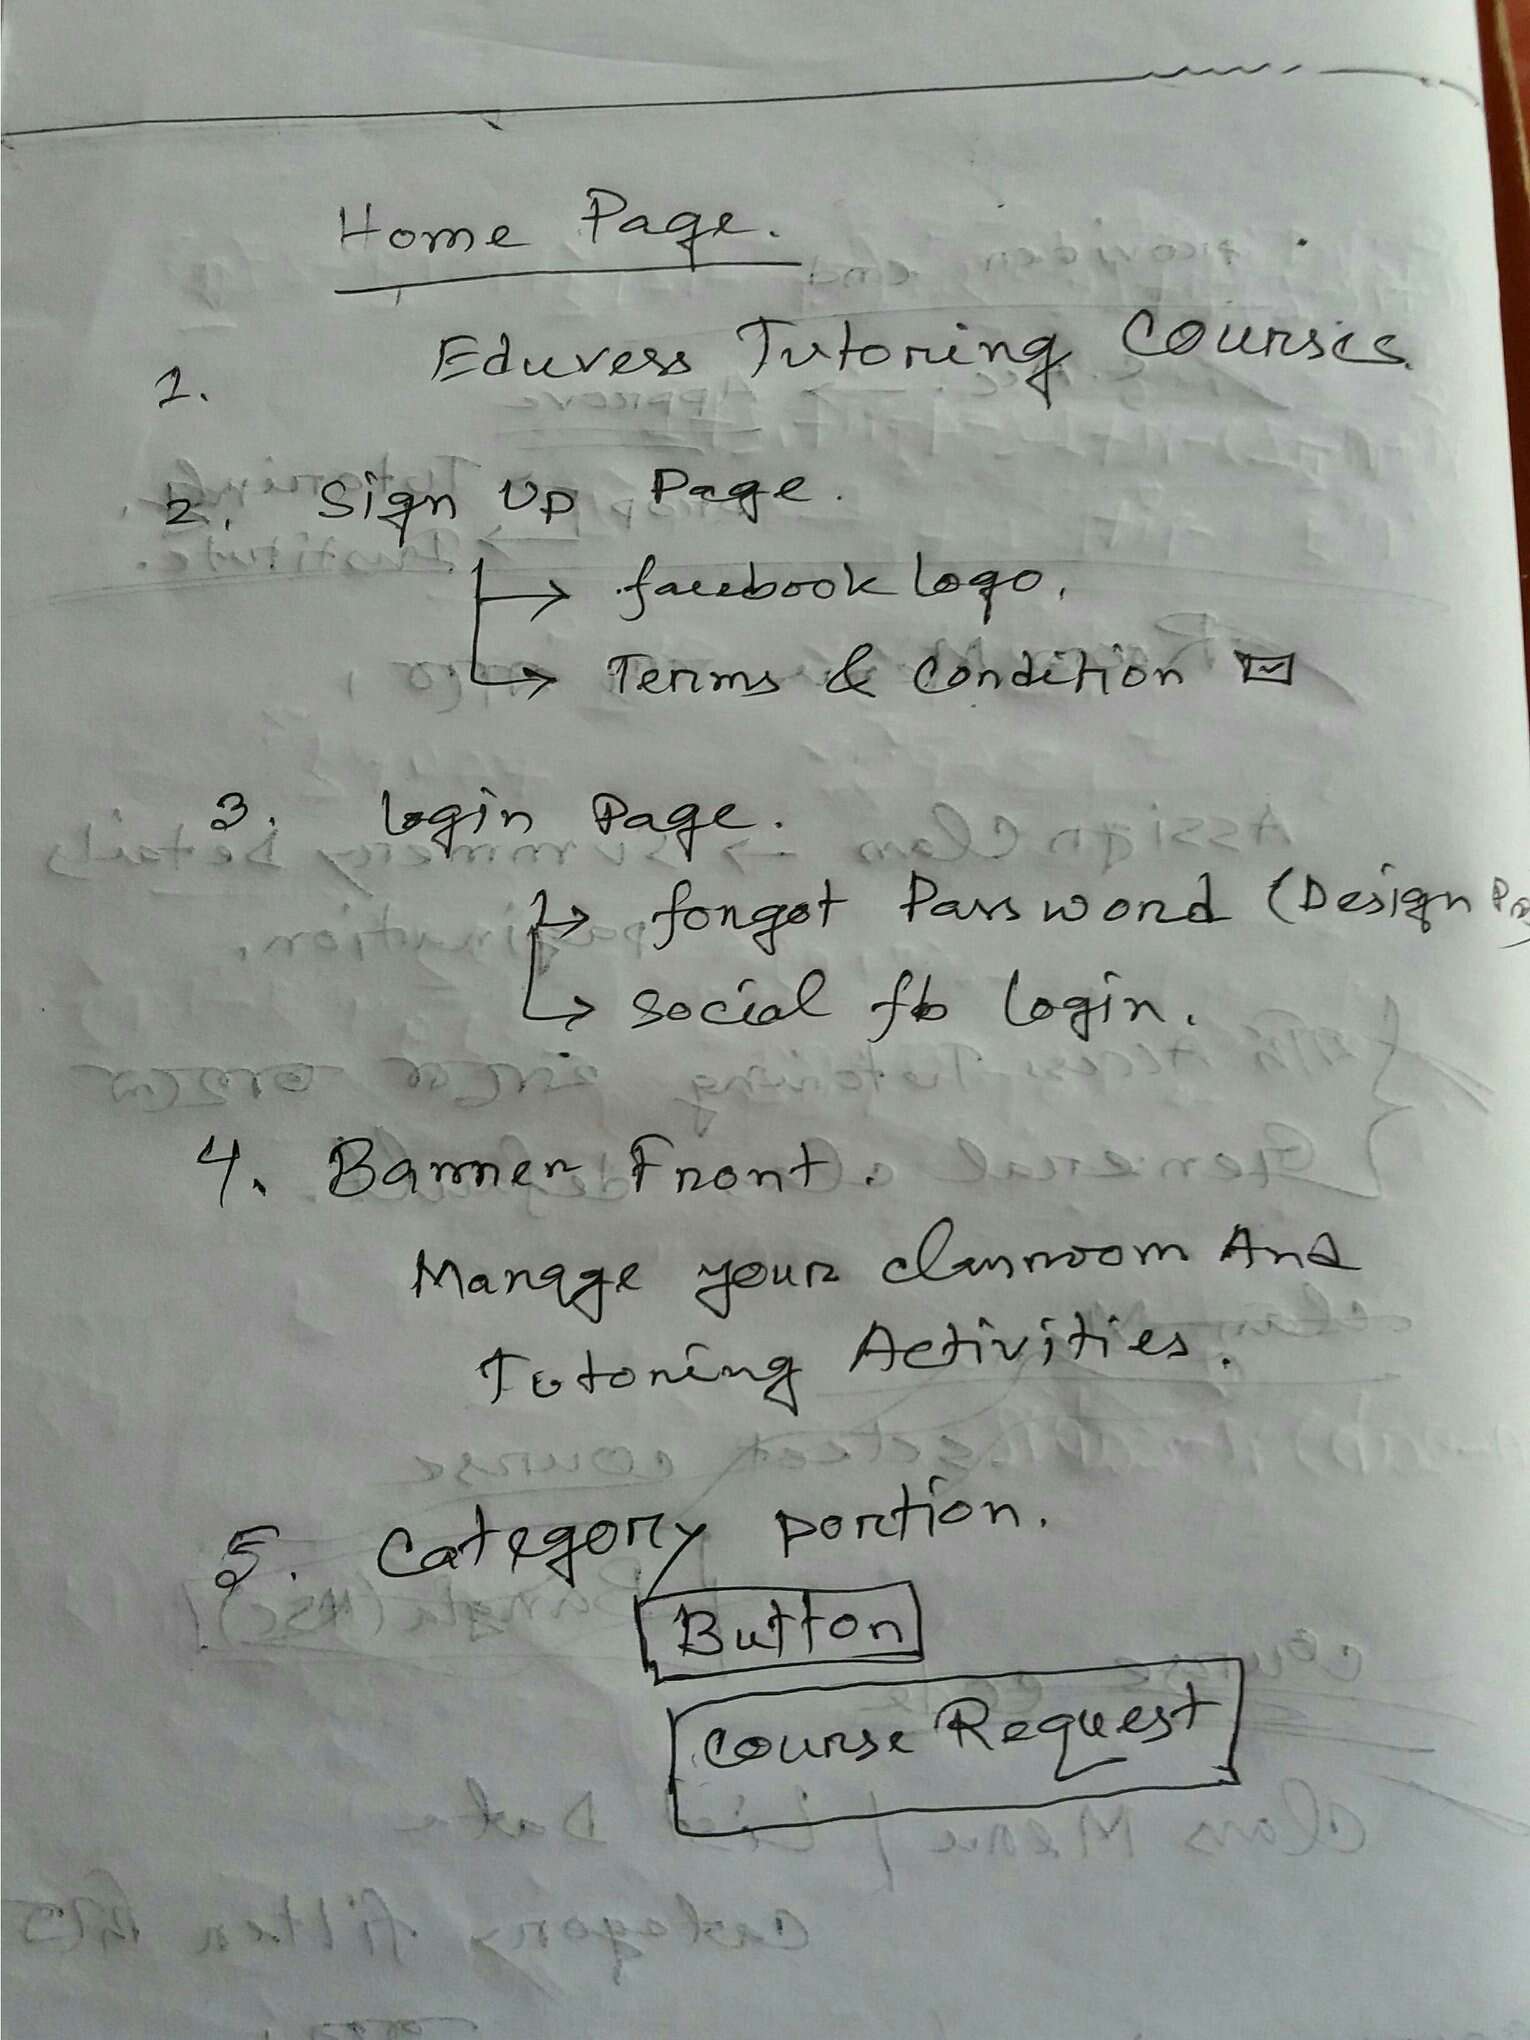 Home Page.
1. Eduvess Tutoring Courses.
2. Sign Up Page.
→ facebook logo.
→ Terms & Condition ☑
3. login Page.
→ forgot Password (Design
→ social fb login.
4. Banner Front.
Manage your classroom And
Tutoring Activities.
5. Category portion.
Button
Course Request